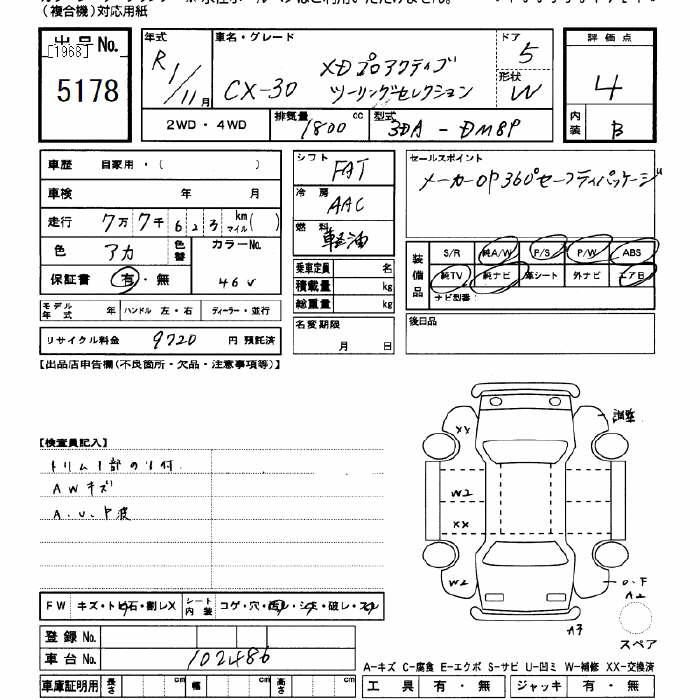 (複合機)対応用紙
出品No.
[1968]
5178
年式
R1/11月
車名・グレード
CX-30
XDプロアクティブ
ツーリングセレクション
ドア
5
形状
W
評価点
4
内装
B
2WD・4WD
排気量
1800 cc
型式
3DA-DM8P
車歴 自家用・( )
車検 年 月
走行 7万7千623 km マイル( )
色 アカ 色替 カラーNo. 46V
保証書 有・無
モデル年式 年 ハンドル 左・右 ディーラー・並行
リサイクル料金 9720 円 預託済
シフト FAT
冷房 AAC
燃料 軽油
乗車定員 名
積載量 kg
総重量 kg
名変期限
月 日
セールスポイント
メーカーOP360°セーフティパッケージ
装備品
S/R 純A/W P/S P/W ABS
純TV 純ナビ 革シート 外ナビ エアB
ナビ型番:
後日品
【出品店申告欄(不良箇所・欠品・注意事項等)】
【検査員記入】
トリム1部のり付
AWキズ
A.U.P波
FW キズ・トビ石・割レX
シート内装 コゲ・穴・汚レ・シミ・破レ・スレ
登録No.
車台No. 102486
車庫証明用 長さ cm 幅 cm 高さ cm
調整
XX
W2
XX
W2
A2
A3
スペア
A-キズ C-腐食 E-エクボ S-サビ U-凹ミ W-補修 XX-交換済
工具 有・無 ジャッキ 有・無